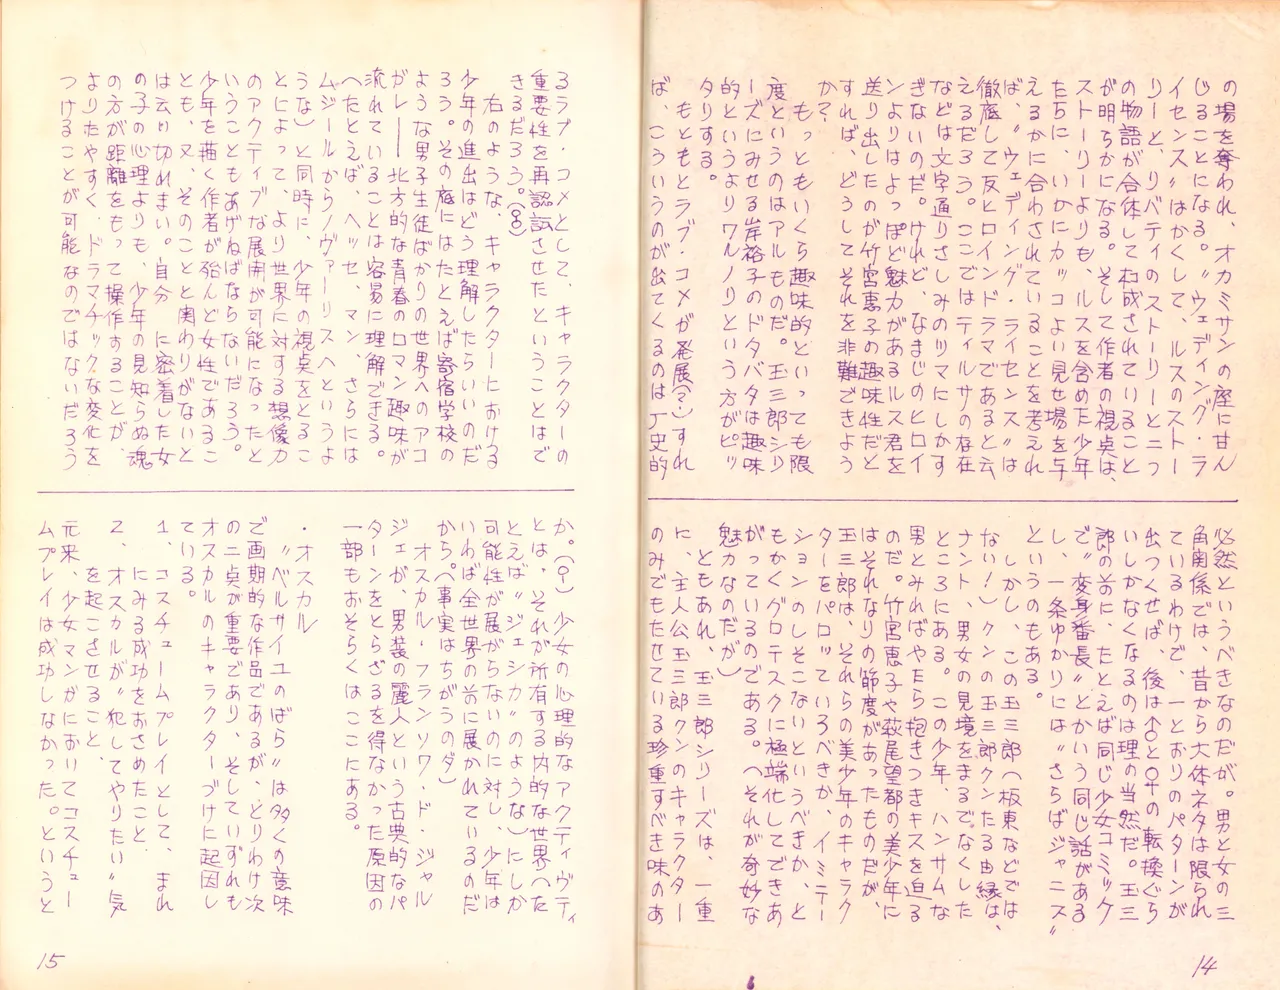 の場を奪われ、オカミサンの座に甘ん
じることになる。〝ウェディング・ラ
イセンス〟はかくして、ルスのストー
リーと、リバティのストーリーと二つ
の物語が合体して構成されていること
が明らかになる。そして作者の視点は、
ストーリーよりも、ルスを含めた少年
たちに、いかにカッコよい見せ場を与
えるかに合わされていることを考えれ
ば、〝ウェディング・ライセンス〟は
徹底して反ヒロインドラマであると云
えるだろう。ここではティルサの存在
などは文字通りさしみのツマにしかす
ぎないのだ。けれど、なまじのヒロイ
ンよりはよっぽど魅力があるルス君を
送り出したのが竹宮恵子の趣味性だと
すれば、どうしてそれを非難できよう
か？
もっともいくら趣味的といっても限
度というのはアルものだ。玉三郎シリ
ーズにみせる岸裕子のドタバタは趣味
的というよりワルノリという方がピッ
タリする。
もともとラブ・コメが発展（？）すれ
ば、こういうのが出てくるのは丁史的
必然というべきなのだが。男と女の三
角関係では、昔から大体ネタは限られ
ているわけで、一とおりのパターンが
出つくせば、後は♂と♀の転換ぐら
いしかなくなるのは理の当然だ。玉三
郎の前に、たとえば同じ少女コミック
で〝変身番長〟とかいう同じ話がある
し、一条ゆかりには〝さらばジャニス〟
というのもある。
しかし、この玉三郎（板東などでは
ない！）クンの玉三郎クンたる由縁は、
ナント、男女の見境をまるでなくした
ところにある。この少年、ハンサムな
男とみればやたら抱きつきキスを迫る
のだ。竹宮恵子や萩尾望都の美少年に
はそれなりの節度があったものだが、
玉三郎は、それらの美少年のキャラク
ターをパロっているべきか、イミテー
ションのしそこないというべきか、と
もかくグロテスクに極端化してできあ
がっているのである。（それが奇妙な
魅力なのだが）
ともあれ、玉三郎シリーズは、一重
に、主人公玉三郎クンのキャラクター
のみでもたせている珍重すべき味のあ
るラブ・コメとして、キャラクターの
重要性を再認試させたということはで
きるだろう。（8）
右のような、キャラクターにおける
少年の進出はどう理解したらいいのだ
ろう。その底にはたとえば寄宿学校の
ような男子生徒ばかりの世界へのアコ
がレ——北方的な青春のロマン趣味が
流れていることは容易に理解できる。
（たとえば、ヘッセ、マン、さらには
ムジールからノヴァーリスへというよ
うな）と同時に、少年の視点をとるこ
とによって、より世界に対する想像力
のアクティブな展開が可能になったと
いうこともあげねばならないだろう。
少年を描く作者が殆んど女性であるこ
とも、又、そのことと関わりがないと
は云い切れまい。自分に密着した女
の子の心理よりも、少年の見知らぬ魂
の方が距離をもって操作することが、
よりたやすく、ドラマチックな変化を
つけることが可能なのではないだろう
か。（9）少女の心理的なアクティヴティ
とは、それが所有する内的な世界へた
とえば〝ジェシカ〟のような）にしか
可能性が展がらないのに対し、少年は
いわば全世界の前に展かれているのだ
から。（事実はちがうのダ）
オスカル・フランソワ・ド・ジャル
ジェが、男装の麗人という古典的なパ
ターンをとらざるを得なかった原因の
一部もおそらくはここにある。
・オスカル
〝ベルサイユのばら〟は多くの意味
で画期的な作品であるが、とりわけ次
の二点が重要であり、そしていずれも
オスカルのキャラクターづけに起因し
ている。
1、コスチュームプレイとして、まれ
にみる成功をおさめたこと、
2、オスカルが〝犯してやりたい〟気
を起こさせること、
元来、少女マンガにおいてコスチュー
ムプレイは成功しなかった。というと
15
14